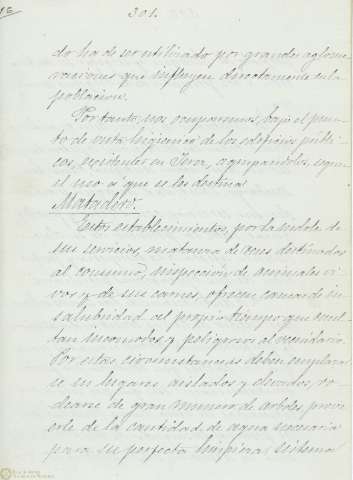 301.
do ha de ser utilizado por grandes aglome
raciones que influyen directamente en la
poblacion.
Por tanto, nos ocuparemos, bajo el pun
to de vista higienico de los edificios públi
cos, existentes en Jerez, agrupandolos, segun
el uso á que se les destina
Matadero.
Estos establecimientos, por la indole de
sus servicios, matanza de reses destinadas
al consumo, inspeccion de animales vi
vos y de sus carnes, ofrecen causas de in
salubridad al propio tiempo que resul
tan incomodos y peligrosos al vecindario.
Por estas circunstancias deben emplazar
se en lugares aislados y elevados, ro
dearse de gran numero de arboles, prove
erle de la cantidad de agua necesaria
para su perfecta limpieza: sistema